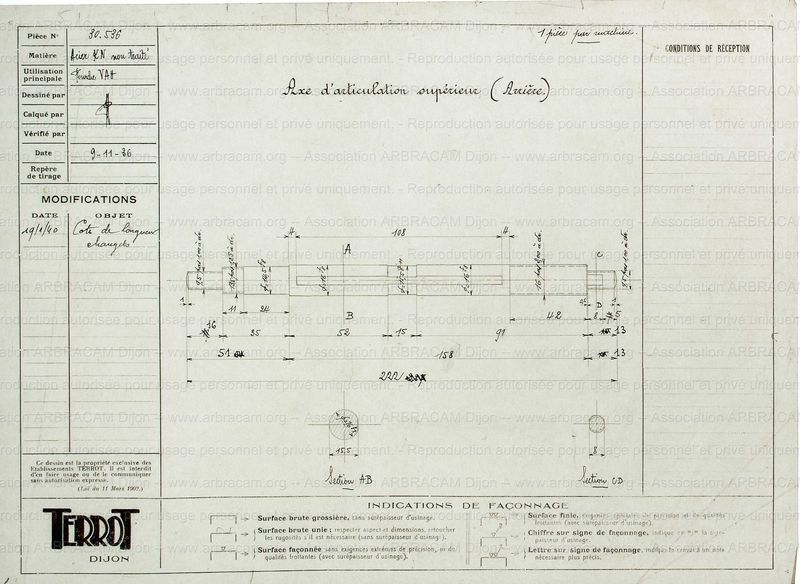 Pièce N° 30.536
1 pièce par machine.
CONDITIONS DE RÉCEPTION
Matière Acier KN non traité
Utilisation principale Fourche VAH
Dessiné par
Calqué par
Vérifié par
Date 9-11-36
Repère de tirage
Axe d'articulation supérieur (Arrière)
MODIFICATIONS
DATE OBJET
19/1/40 Cote de longueur
changée
4 108 4
A
C
B
D
1
11 24
42
8
5
16 35 52 15 91 13
51 158 13
222
15,5
8
Section AB
Section CD
Ce dessin est la propriété exclusive des
Etablissements TERROT. Il est interdit
d'en faire usage ou de le communiquer
sans autorisation expresse.
(Loi du 11 Mars 1902.)
TERROT
DIJON
INDICATIONS DE FAÇONNAGE
Surface brute grossière, sans surépaisseur d'usinage.
Surface brute unie; respecter aspect et dimensions, retoucher
les rugosités s'il est nécessaire (sans surépaisseur d'usinage).
Surface façonnée sans exigences extrêmes de précision, ni de
qualités frottantes (avec surépaisseur d'usinage).
Surface finie, exigences spéciales de précision et de qualités
frottantes (avec surépaisseur d'usinage).
Chiffre sur signe de façonnage, indique en m/m la surépaisseur d'usinage.
Lettre sur signe de façonnage, indique le renvoi à un note
nécessaire plus précis.
www.arbracam.org -- Association ARBRACAM Dijon -- www.arbracam.org -- Association ARBRACAM Dijon
Reproduction autorisée pour usage personnel et privé uniquement. - Reproduction autorisée pour usage personnel et privé uniquement.